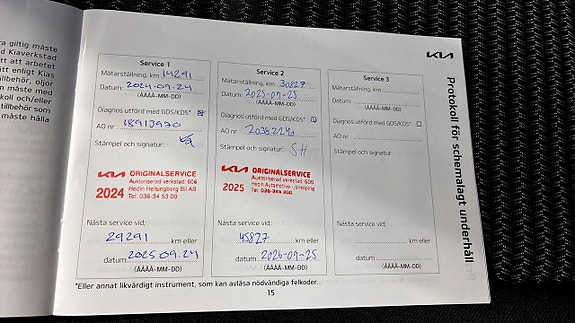 ra giltig måste
d Kiaverkstad
t att arbetet
enligt Kias
llbehör, oljor
n måste med
koll och/eller
lbehör som
måste hålla
KIA
Protokoll för schemalagt underhåll
Service 1
Mätarställning, km 14291
Datum: 2024-09-24
(ÅÅÅÅ-MM-DD)
Diagnos utförd med GDS/KDS*
AO nr
Stämpel och signatur:
KIA ORIGINALSERVICE
2024
Auktoriserad verkstad 606
Hedin Helsingborg Bil AB
Tel. 036-34 53 00
Nästa service vid;
29291 km eller
datum 2025-09.24
(ÅÅÅÅ-MM-DD)
Service 2
Mätarställning, km 30827
Datum: 2025-09-25
(ÅÅÅÅ-MM-DD)
Diagnos utförd med GDS/KDS*
AO nr
Stämpel och signatur:
SH
KIA ORIGINALSERVICE
2025
Auktoriserad verkstad 606
Hedin Automotive Jönköping
Tel.
Nästa service vid;
45827 km eller
datum 2026-09-25
(ÅÅÅÅ-MM-DD)
Service 3
Mätarställning, km
Datum:
(ÅÅÅÅ-MM-DD)
Diagnos utförd med GDS/KDS*
AO nr
Stämpel och signatur:
Nästa service vid;
km eller
datum
(ÅÅÅÅ-MM-DD)
*Eller annat likvärdigt instrument, som kan avläsa nödvändiga felkoder.
15